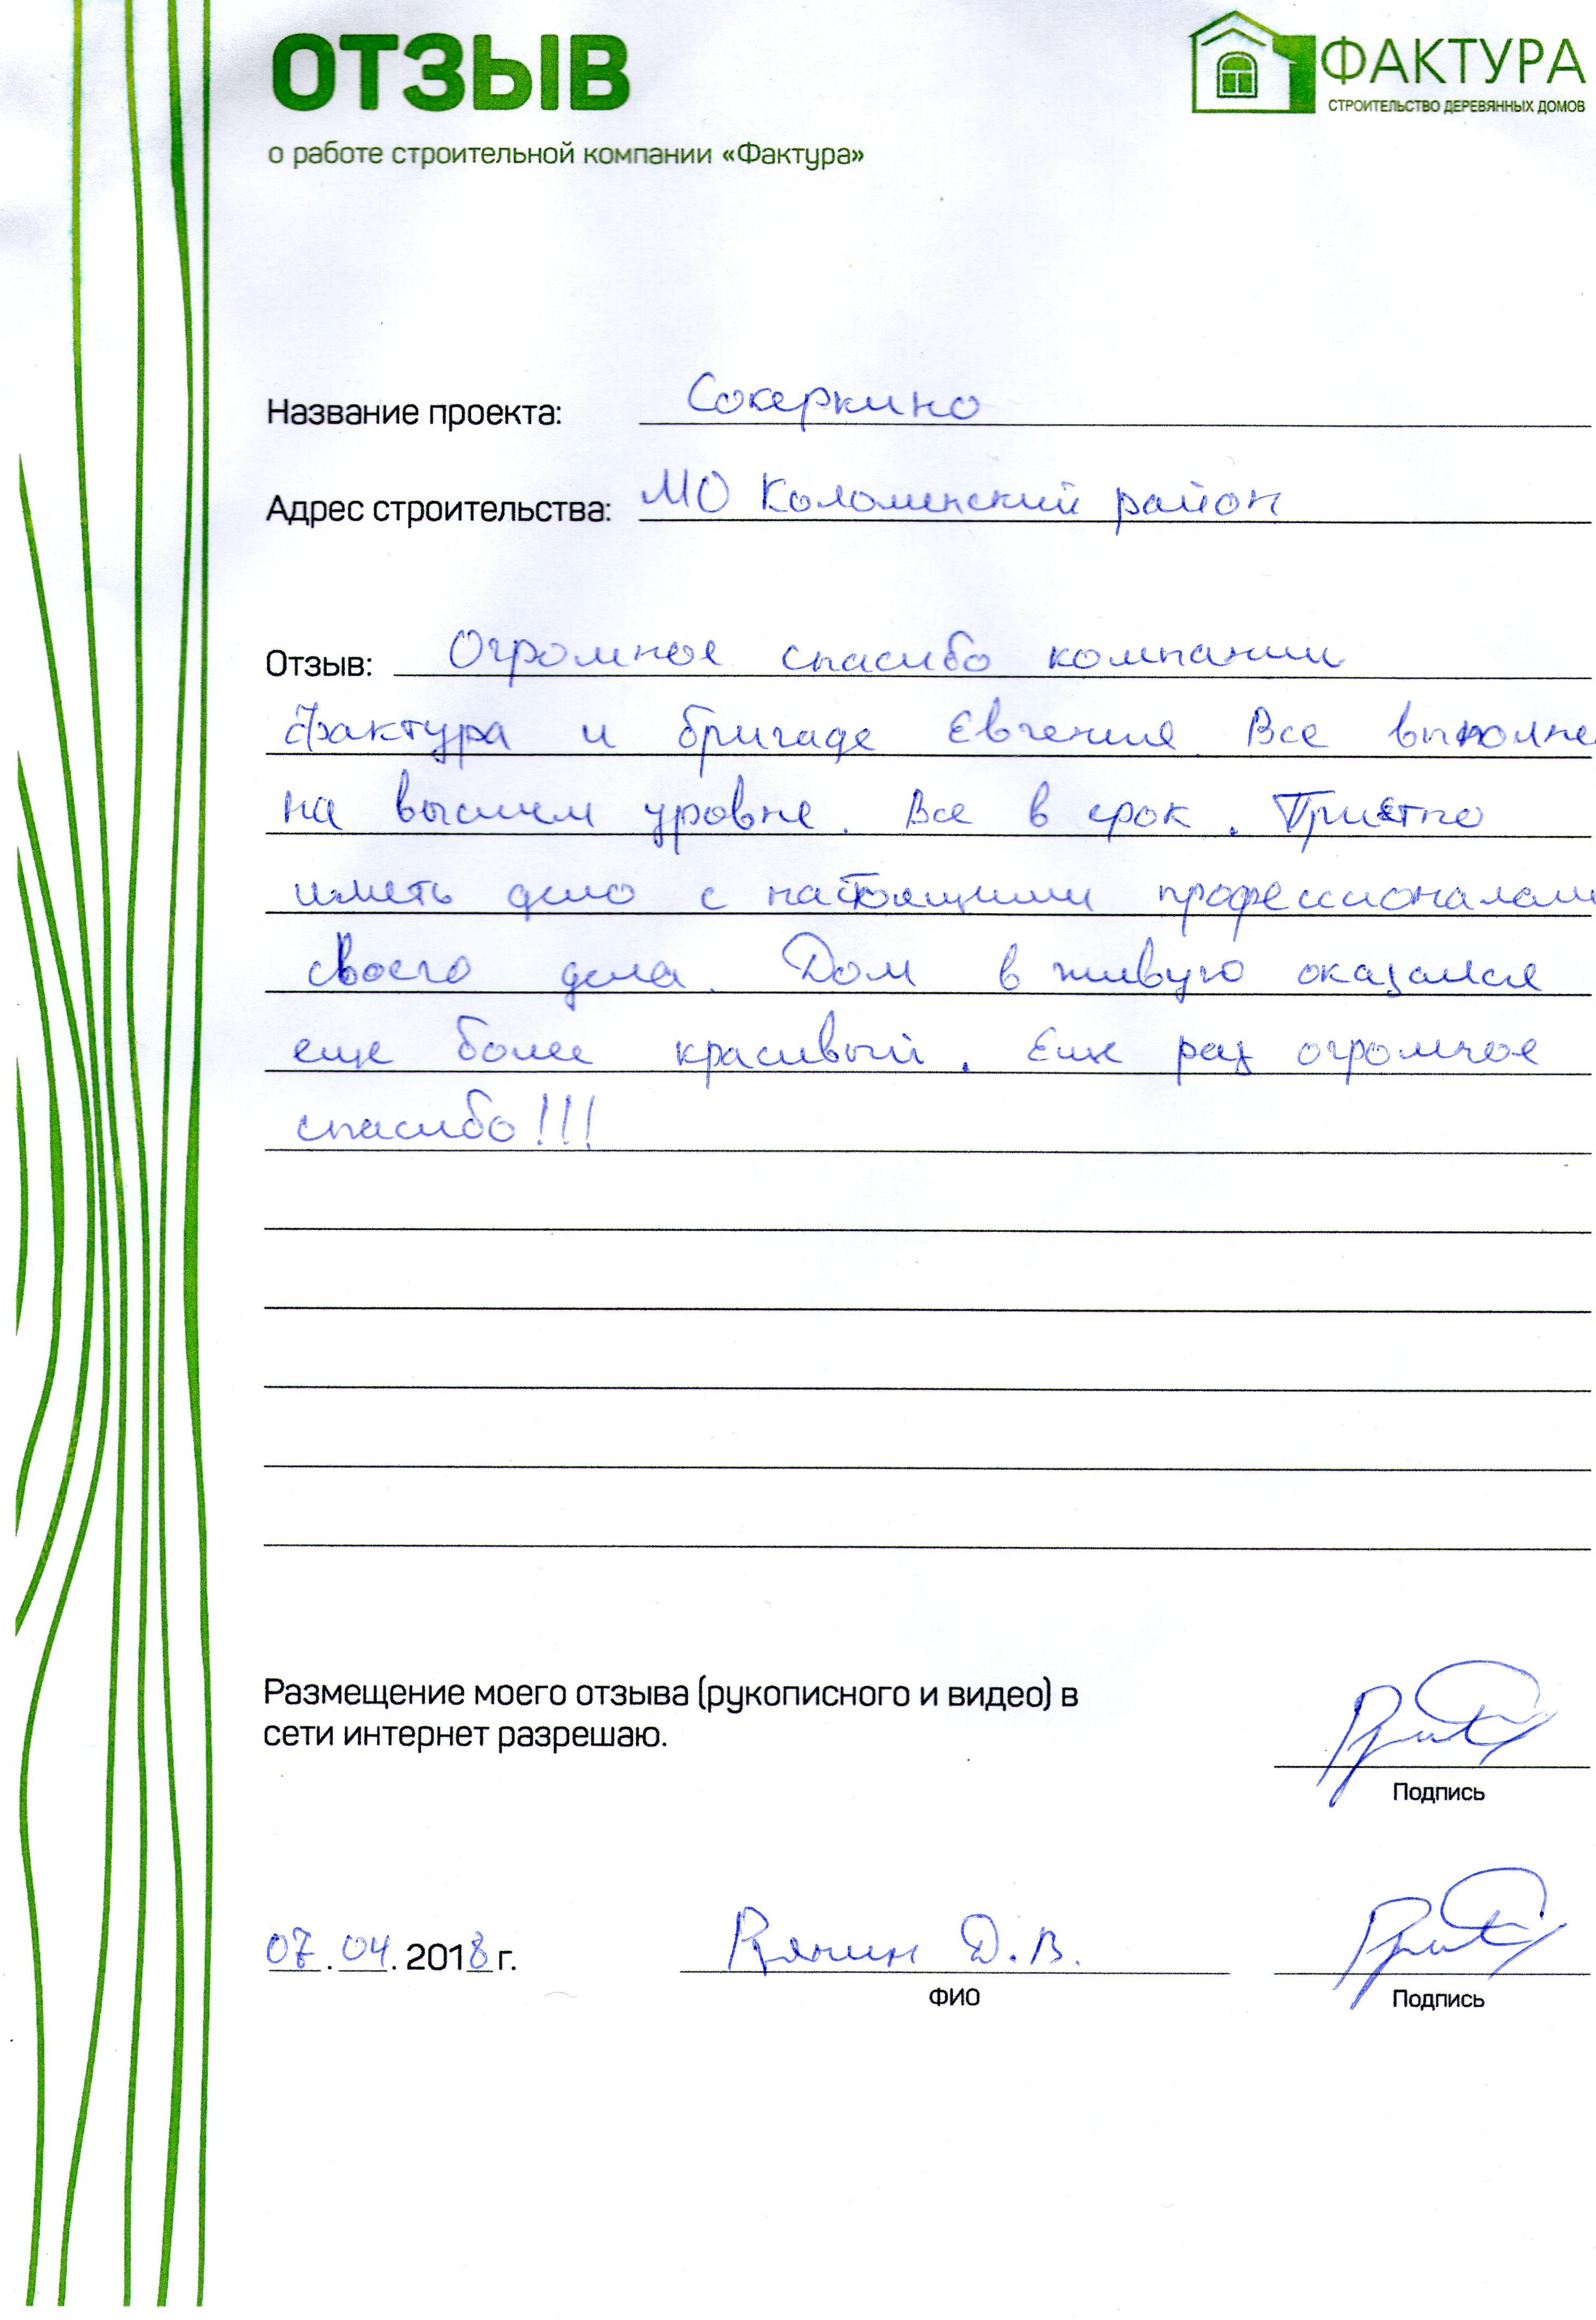 ОТЗЫВ
ФАКТУРА
СТРОИТЕЛЬСТВО ДЕРЕВЯННЫХ ДОМОВ
о работе строительной компании «Фактура»
Название проекта: Сокеркино
Адрес строительства: МО Коломенский район
Отзыв: Огромное спасибо компании
Фактура и бригаде Евгения. Все выполне
на высшем уровне. Все в срок. Приятно
иметь дело с настоящими профессионалами
своего дела. Дом в живую оказался
еще более красивый. Еще раз огромное
спасибо!!!
Размещение моего отзыва (рукописного и видео) в
сети интернет разрешаю.
Подпись
07.04.2018 г. Д.В.
ФИО Подпись